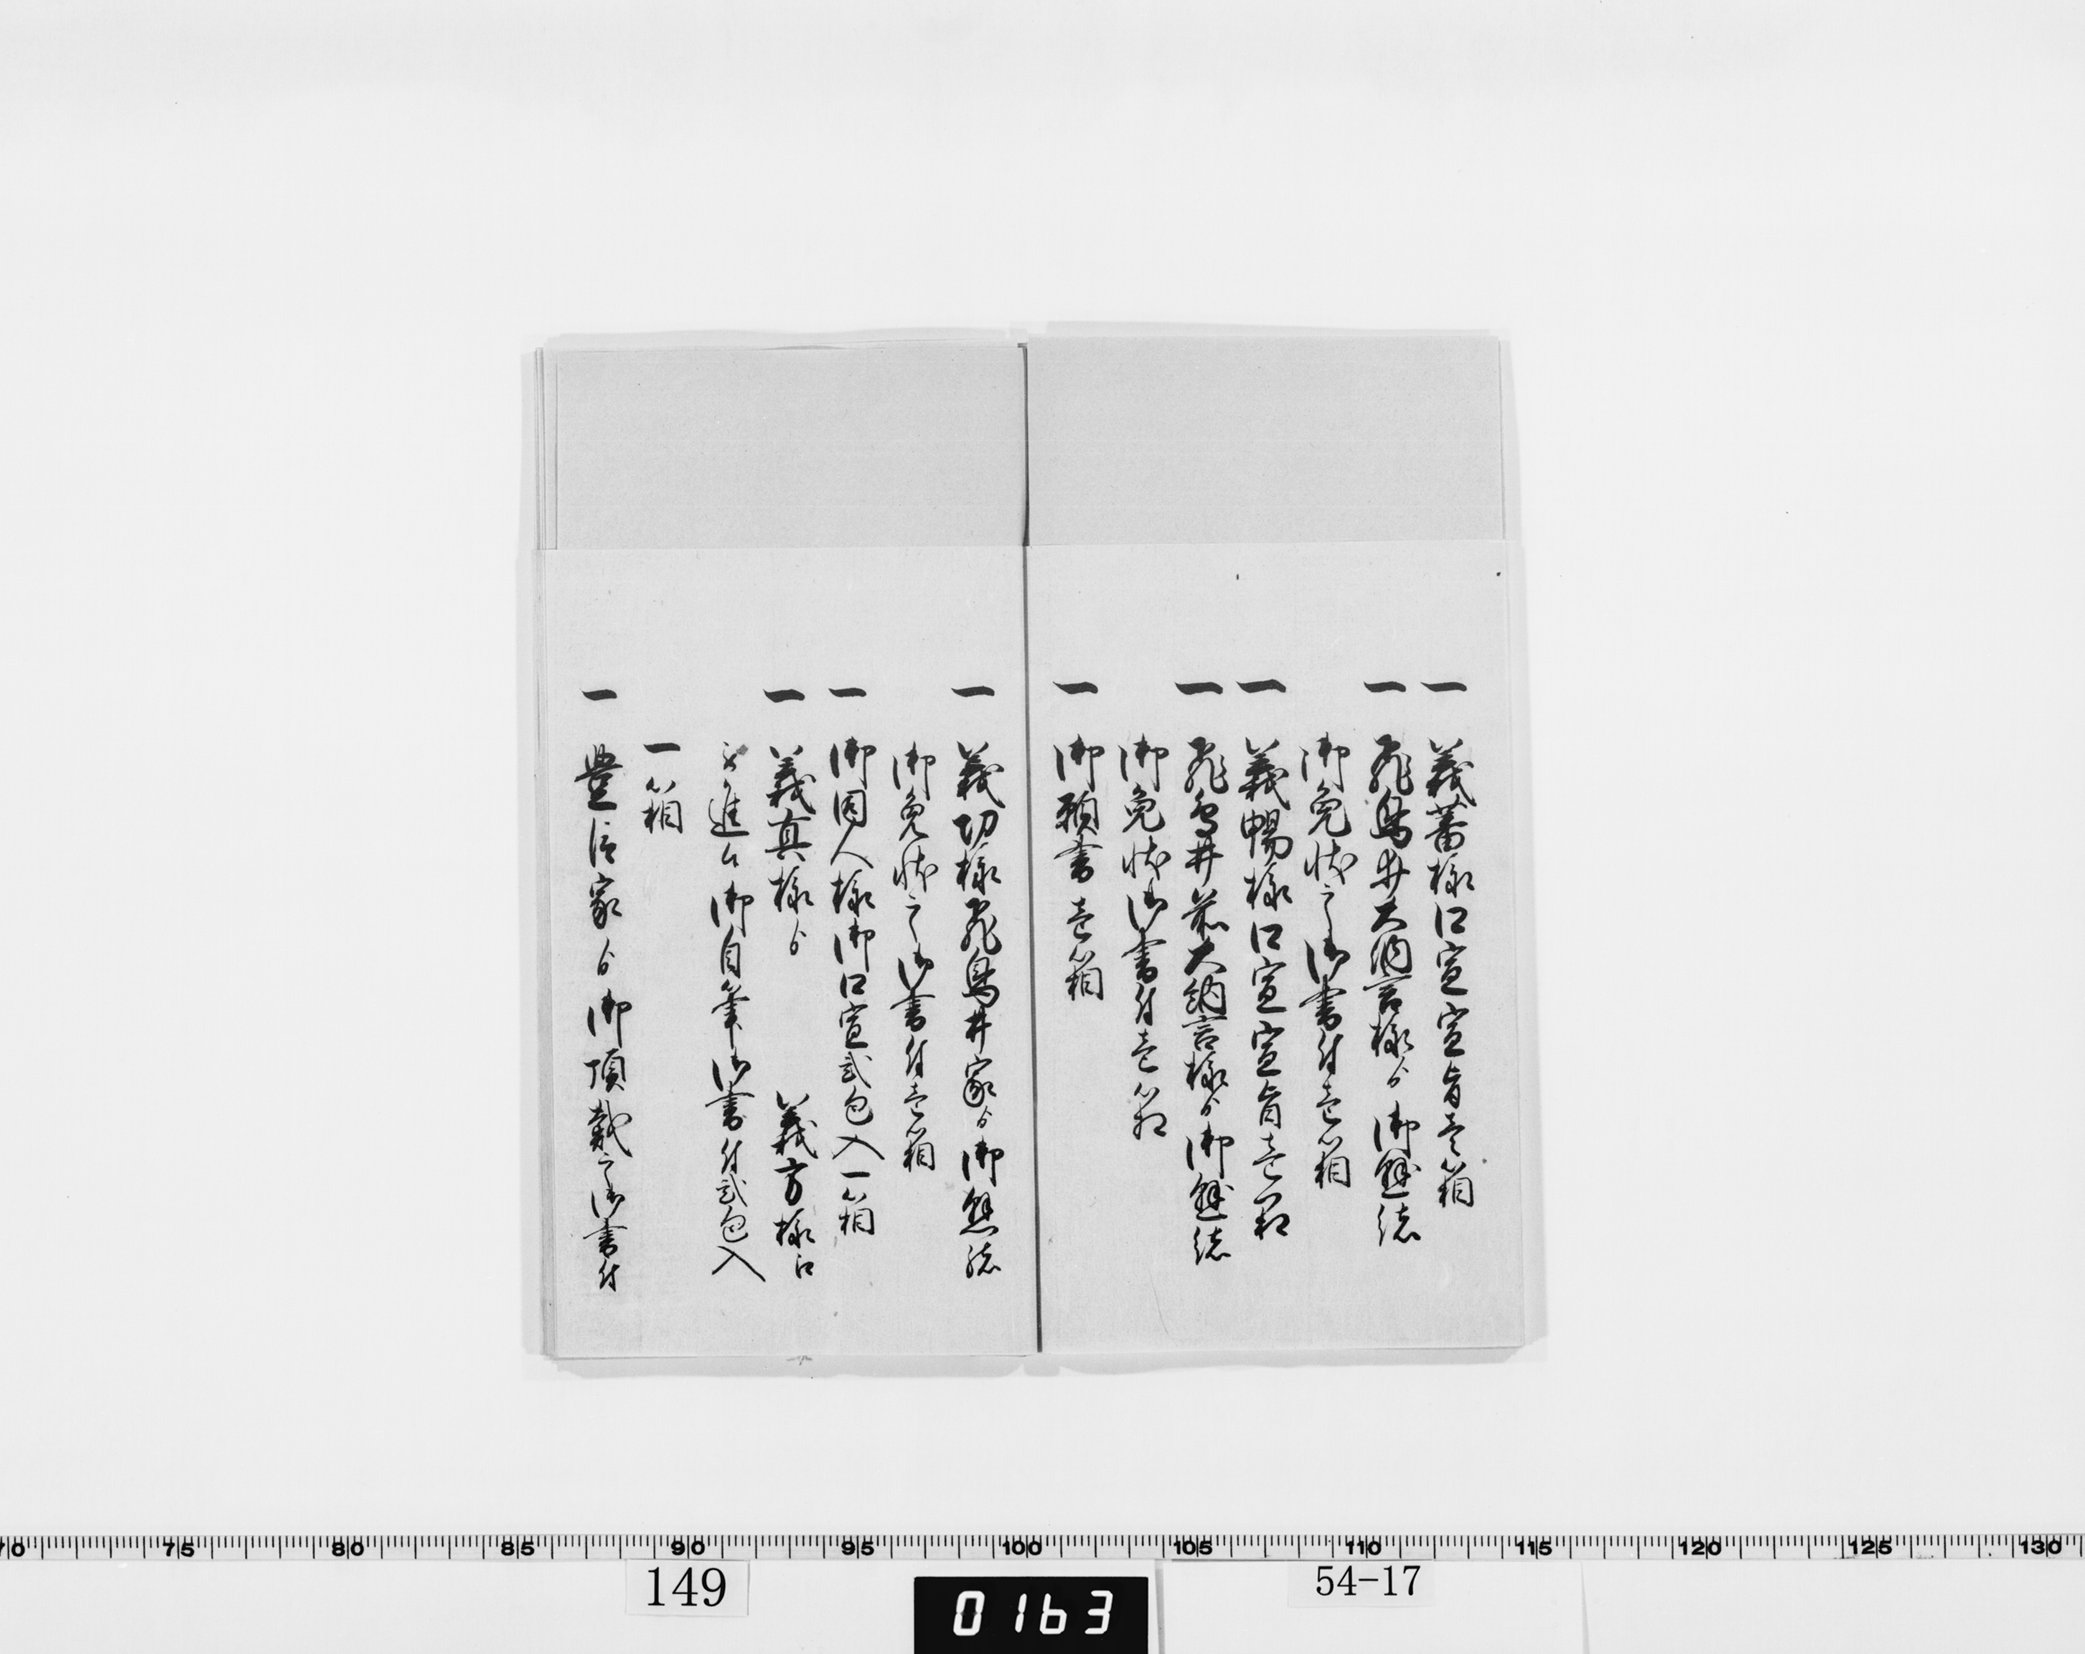 一 義蕃様口宣宣旨壱箱
一 飛鳥井大納言様ゟ御懸緒
御免状之御書付壱箱
一 義暢様口宣宣旨壱箱
一 飛鳥井前大納言様ゟ御懸緒
御免状御書付壱箱
一 御願書壱箱
一 義功様飛鳥井家ゟ御懸緒
御免状之御書付壱箱
一 御同人様御口宣弐包入一箱
一 義真様ゟ 義方様江
被進候御自筆御書付弐包入
一箱
一 豊臣家ゟ御頂戴之御書付
70 75 80 85 90 95 100 105 110 115 120 125 130
149
0163
54-17